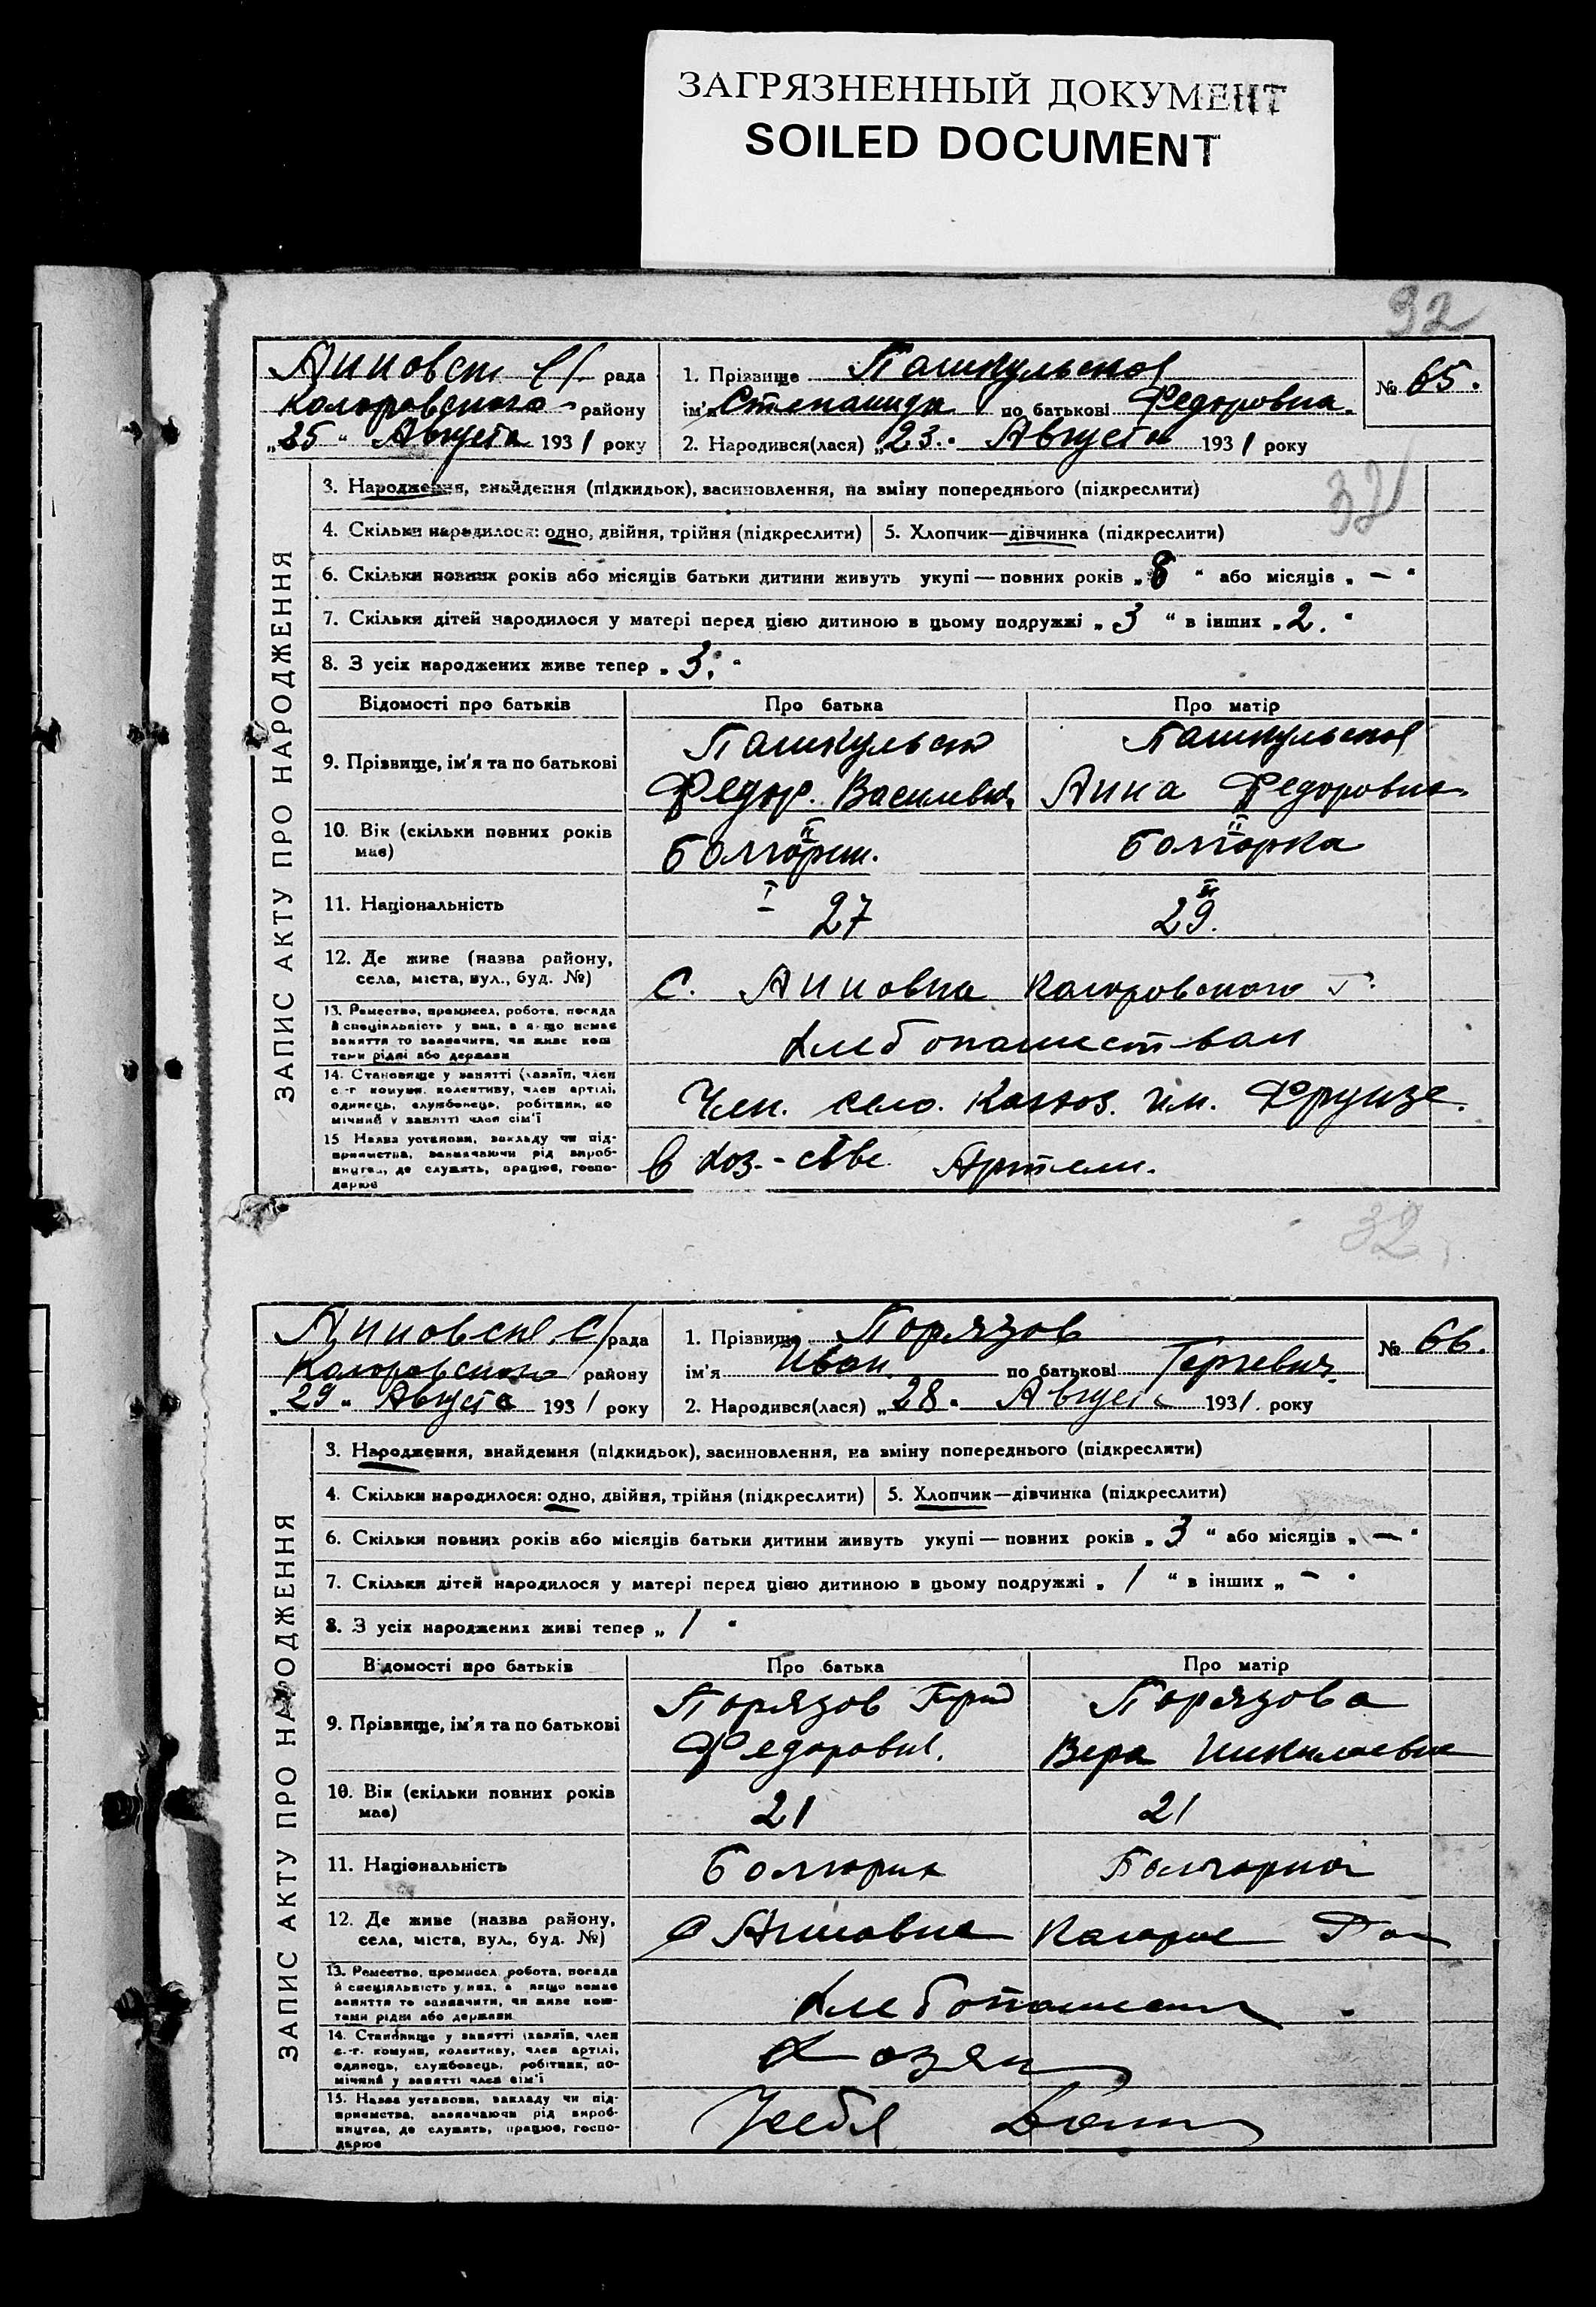 ЗАГРЯЗНЕННЫЙ ДОКУМЕНТ
SOILED DOCUMENT
92
ЗАПИС АКТУ ПРО НАРОДЖЕННЯ
Анновск С/ рада
Коларовского району
„25“ Августа 1931 року
1. Прізвище Пашкульская
ім'я Степанида по батькові Федоровна.
2. Народився(лася) „23.“ Августа 1931 року
№ 65.
3. Народження, знайдення (підкидьок), засиновлення, на зміну попереднього (підкреслити)
32
4. Скільки народилося: одно, двійня, трійня (підкреслити)
5. Хлопчик—дівчинка (підкреслити)
6. Скільки повних років або місяців батьки дитини живуть укупі — повних років „8“ або місяців „—“
7. Скільки дітей народилося у матері перед цією дитиною в цьому подружжі „3“ в інших „2.“
8. З усіх народжених живе тепер „3.“
Відомості про батьків Про батька Про матір
9. Прізвище, ім'я та по батькові
Пашкульск
Федор. Василевич
Пашкульская
Анна Федоровна
10. Вік (скільки повних років має)
II
Болгарин.
II
Болгарка
11. Національність
I
27
II
29.
12. Де живе (назва району, села, міста, вул., буд. №)
С. Анновка Коларовского
13. Ремество, промисел, робота, посада й спеціальність у них, а якщо немає заняття то зазначити, чи живе коштами рідні або держави
14. Становище у занятті (хазяїн, член с.-г. комуни, колективу, член артілі, одинець, службовець, робітник, помічний у занятті член сім'ї
Член. село. Колхоз. им. Фрунзе.
15. Назва установи, закладу чи підприємства, зазначаючи рід виробництва, де служить, працює, господарює
в хоз.-стве Артели.
32
ЗАПИС АКТУ ПРО НАРОДЖЕННЯ
Анновск С/ рада
Коларовского району
„29“ Августа 1931 року
1. Прізвище Порязов
ім'я Иван. по батькові
2. Народився(лася) „28“ Августа 1931. року
№ 66.
3. Народження, знайдення (підкидьок), засиновлення, на зміну попереднього (підкреслити)
4. Скільки народилося: одно, двійня, трійня (підкреслити)
5. Хлопчик—дівчинка (підкреслити)
6. Скільки повних років або місяців батьки дитини живуть укупі — повних років „3“ або місяців „—“
7. Скільки дітей народилося у матері перед цією дитиною в цьому подружжі „1“ в інших „-“
8. З усіх народжених живі тепер „1“
Відомості про батьків Про батька Про матір
9. Прізвище, ім'я та по батькові
Порязов
Федорович.
Порязова
Вера Николаевна
10. Вік (скільки повних років має)
21
21
11. Національність
Болгарин
Болгарка
12. Де живе (назва району, села, міста, вул., буд. №)
с Анновка
13. Ремество, промисел, робота, посада й спеціальність у них, а якщо немає заняття то зазначити, чи живе коштами рідні або держави
14. Становище у занятті (хазяїн, член с.-г. комуни, колективу, член артілі, одинець, службовець, робітник, помічний у занятті член сім'ї
Хозяин
15. Назва установи, закладу чи підприємства, зазначаючи рід виробництва, де служить, працює, господарює